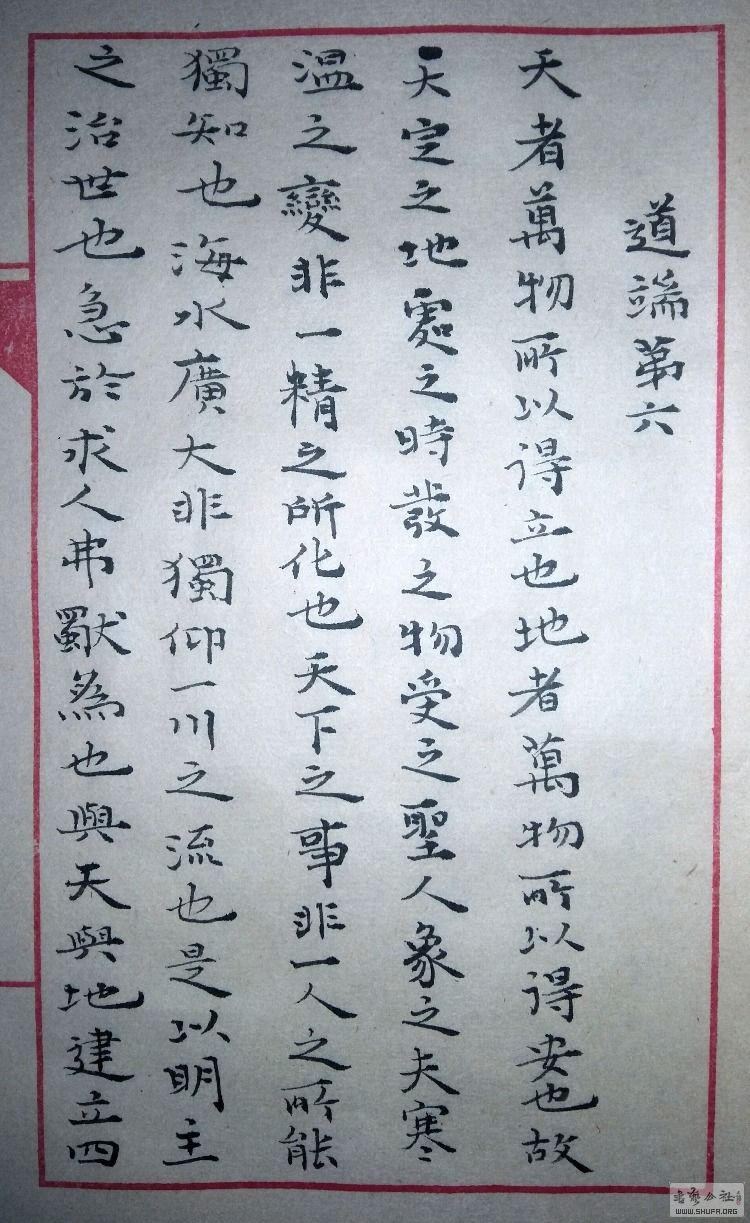 道端第六
天者萬物所以得立也地者萬物所以得安也故
天定之地處之時發之物受之聖人象之夫寒
溫之變非一精之所化也天下之事非一人之所能
獨知也海水廣大非獨仰一川之流也是以明主
之治世也急於求人弗獸為也與天與地建立四
WWW.SHUFA.ORG